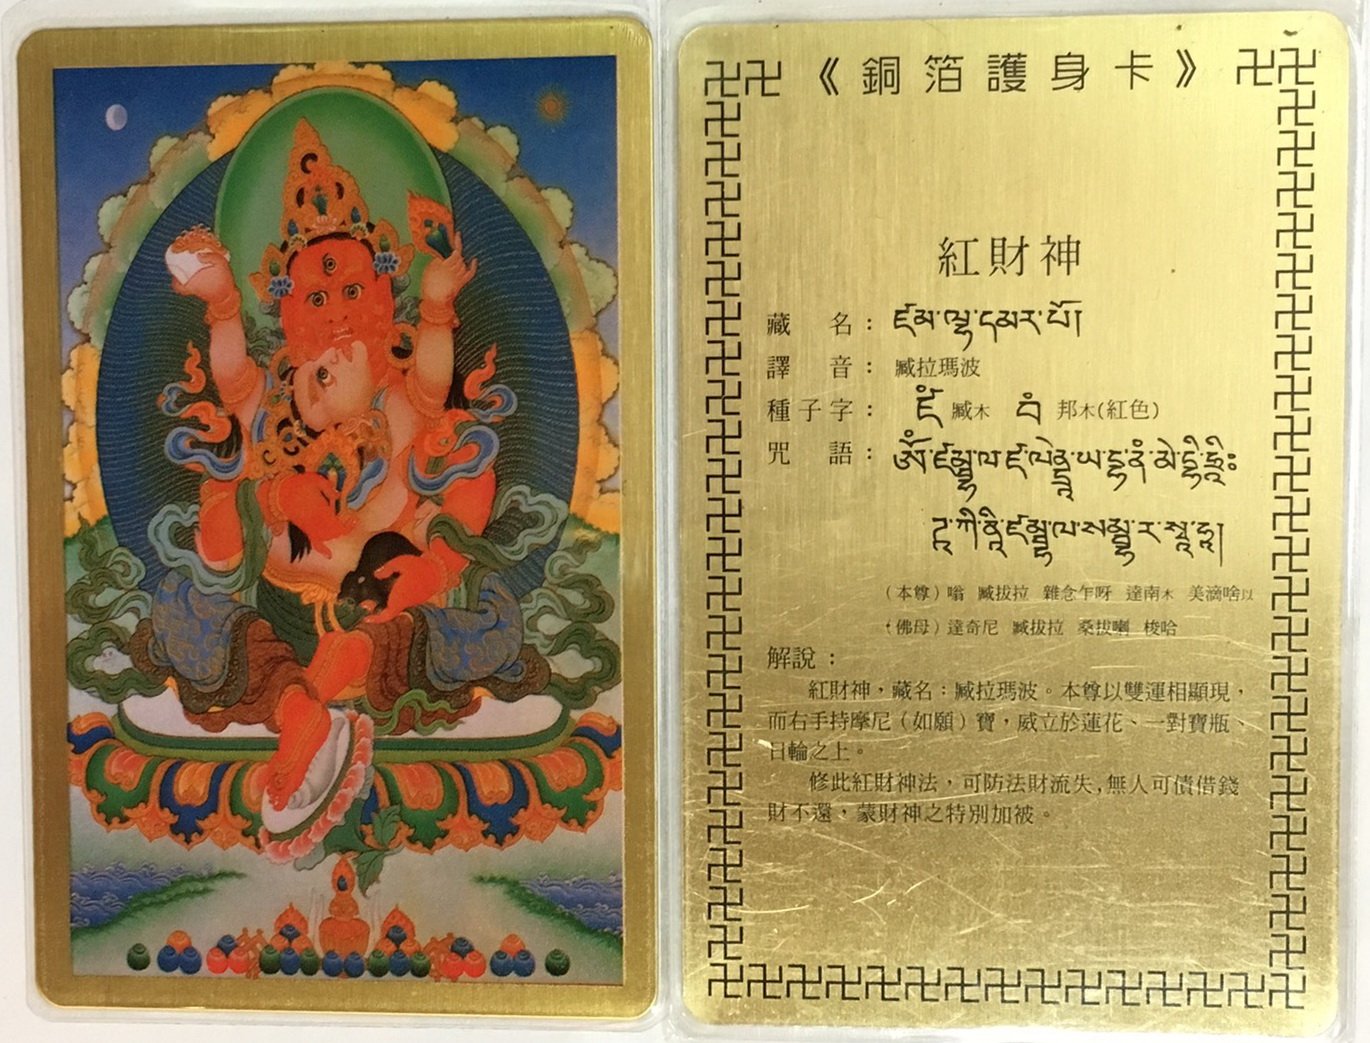 《銅箔護身卡》
紅財神
藏名：ཛཾ་ལྷ་དམར་པོ།
譯音：臧拉瑪波
種子字：ཛཾ 臧木 བཾ 邦木(紅色)
咒語：
(本尊)嗡 臧拔拉 雜念乍呀 達南木 美滴啥以
(佛母)達奇尼 臧拔拉 桑拔喇 梭哈
解說：
紅財神，藏名：臧拉瑪波。本尊以雙運相顯現，
而右手持摩尼(如願)寶，威立於蓮花、一對寶瓶、
日輪之上。
修此紅財神法，可防法財流失,無人可債借錢
財不還，蒙財神之特別加被。